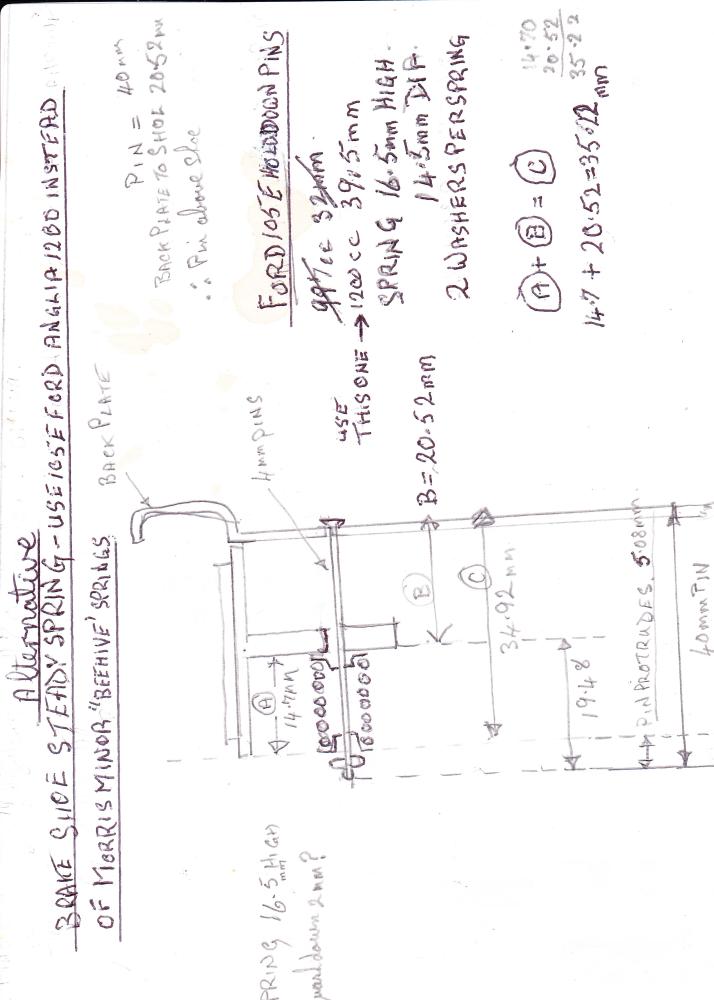 Alternative
BRAKE SHOE STEADY SPRING - USE 105E FORD ANGLIA 1200 INSTEAD
OF MORRIS MINOR "BEEHIVE" SPRINGS
PIN = 40mm
BACKPLATE TO SHOE 20.52mm
∴ Pin above shoe
BACKPLATE
4mm PINS
FORD 105E HOLDDOWN PINS
997cc 32mm.
USE
THIS ONE → 1200cc 39.5mm
SPRING 16.5mm HIGH.
14.5mm DIA.
2 WASHERS PER SPRING
B = 20.52mm
A + B = C
14.7 + 20.52 = 35.22mm
14.70
20.52
35.22
A
14.7mm
B
C
34.92mm
19.48
PIN PROTRUDES. 5.08mm.
40mm PIN
PRING 16.5mm HIGH
down 2mm?